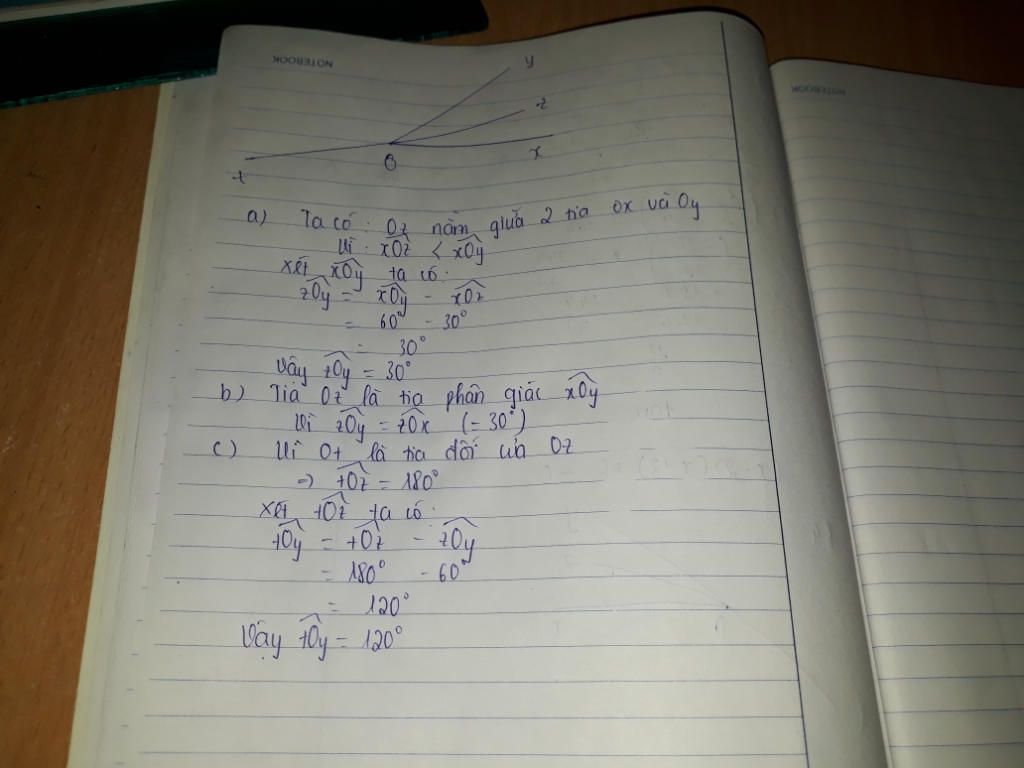 NOTEBOOK
NOTEBOOK
y
z
x
O
t
a) Ta có: Oz nằm giữa 2 tia Ox và Oy
Vì: xOz < xOy
Xét xOy ta có:
zOy = xOy - xOz
= 60° - 30°
= 30°
Vậy zOy = 30°
b) Tia Oz là tia phân giác xOy
Vì zOy = zOx (= 30°)
c) Vì Ot là tia đối của Oz
=> tOz = 180°
Xét tOz ta có:
tOy = tOz - zOy
= 180° - 60°
= 120°
Vậy tOy = 120°